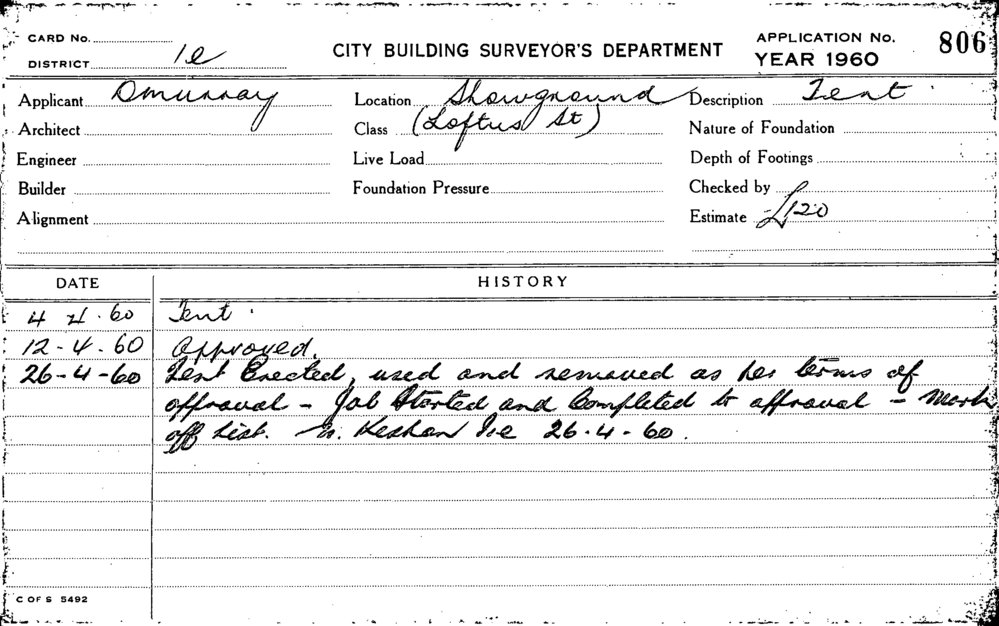 CARD No.
DISTRICT 1e
CITY BUILDING SURVEYOR'S DEPARTMENT
APPLICATION No. 806
YEAR 1960
Applicant D Murray
Location Showground
Description Tent.
Architect
Class (Loftus St)
Nature of Foundation
Engineer
Live Load
Depth of Footings
Builder
Foundation Pressure
Checked by
Alignment
Estimate £120
DATE HISTORY
4 4.60 Tent.
12-4-60 Approved.
26-4-60 Tent Erected, used and removed as per terms of
approval - Job Started and Completed to approval - Mark
off List. 1.e 26.4-60.
C OF S 5492